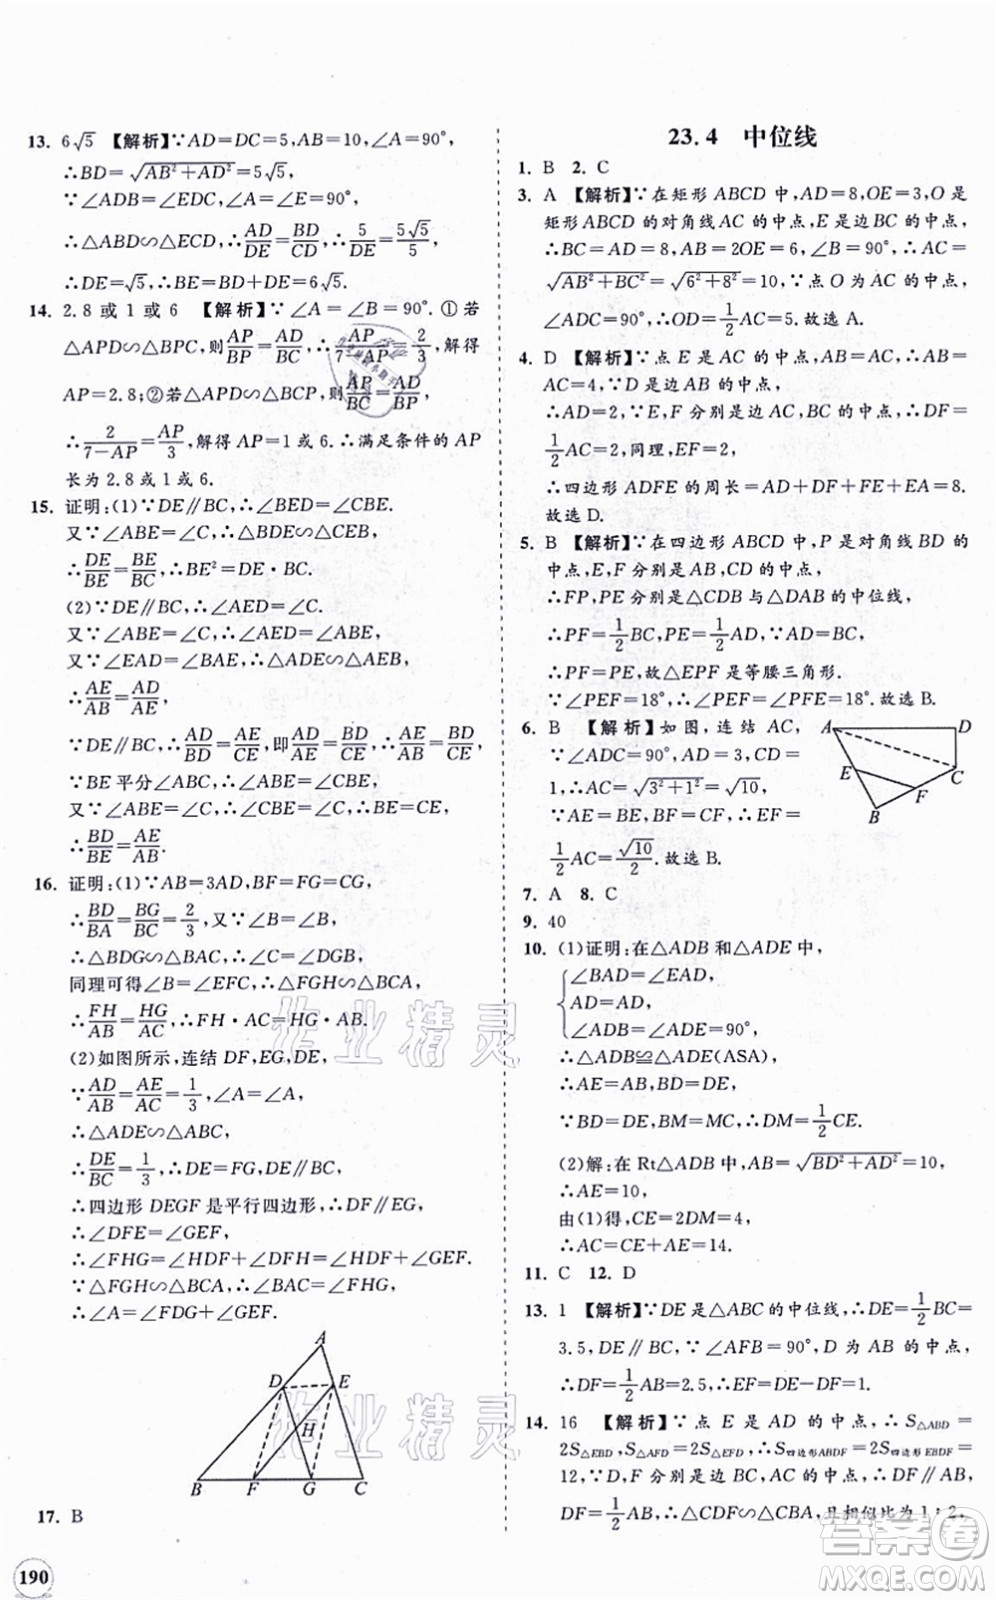 13. 6√5 【解析】∵AD=DC=5,AB=10,∠A=90°,
∴BD=√(AB²+AD²)=5√5,
∵∠ABD=∠EDC,∠A=∠E=90°,
∴△ABD∽△ECD,∴AD/DE=BD/CD,∴5/DE=5√5/5,
∴DE=√5,∴BE=BD+DE=6√5.
14. 2.8 或 1 或 6 【解析】∵∠A=∠B=90°.①若
△APD∽△BPC,则AP/BP=AD/BC,∴AP/7-AP=2/3,解得
AP=2.8;②若△APD∽△BCP,则AP/BC=AD/BP,
∴2/7-AP=AP/3,解得AP=1或6.∴满足条件的AP
长为2.8或1或6.
15. 证明:(1)∵DE∥BC,∴∠BED=∠CBE.
又∵∠ABE=∠C,∴△BDE∽△CEB,
∴DE/BE=BE/BC,∴BE²=DE·BC.
(2)∵DE∥BC,∴∠AED=∠C.
又∵∠ABE=∠C,∴∠AED=∠ABE.
又∵∠EAD=∠BAE,∴△ADE∽△AEB,
∴AE/AB=AD/AE,
∵DE∥BC,∴AD/BD=AE/CE,即AD/AE=BD/CE,∴AE/AB=BD/CE,
∵BE平分∠ABC,∴∠ABE=∠CBE,
又∵∠ABE=∠C,∴∠CBE=∠C,∴BE=CE,
∴BD/BE=AE/AB.
16. 证明:(1)∵AB=3AD,BF=FG=CG,
∴BD/BA=BG/BC=2/3,又∵∠B=∠B,
∴△BDG∽△BAC,∴∠C=∠DGB,
同理可得∠B=∠EFC,∴△FHG∽△BAC,
∴FH/AB=HG/AC,∴FH·AC=HG·AB.
(2)如图所示,连结DF,EG,DE,
∵AD/AB=AE/AC=1/3,∠A=∠A,
∴△ADE∽△ABC,
∴DE/BC=1/3,∴DE=FG,DE∥FG,
∴四边形DEGF是平行四边形,∴DF∥EG,
∴∠DFE=∠GEF,
∴∠DFE+∠DFH=∠DFH+∠GEF.
∵△BDG∽△BCA,∴∠BAC=∠FHG,
∴∠A=∠FDG+∠GEF.
A
D E
H
B F G C
17. B
190
23.4 中位线
1. B 2. C
3. A 【解析】∵在矩形ABCD中,AD=8,OE=3,O是
矩形ABCD的对角线AC的中点,E是边BC的中点,
∴BC=AD=8,AB=2OE=6,∠B=90°,∴AC=
√(AB²+BC²)=√(6²+8²)=10,∵点O为AC的中点,
∠ADC=90°,∴OD=1/2AC=5.故选A.
4. D 【解析】∵点E是AC的中点,AB=
AC=4,∴AE=2,∵D是边AB的中点,
∴AD=2,∵D,F分别是边AB,BC的中点,∴DF=
1/2AC=2,同理,EF=2,
∴四边形ADFE的周长=AD+DF+FE+AE=8.
故选D.
5. B 【解析】∵在四边形ABCD中,P是对角线BD的
中点,E,F分别是AB,CD的中点,
∴FP,PE分别是△CDB与△DAB的中位线,
∴PF=1/2BC,PE=1/2AD,∵AD=BC,
∴PF=PE,故△EPF是等腰三角形.
∵∠PEF=18°,∴∠PEF=∠PFE=18°.故选B.
6. B 【解析】如图,连结AC,
∵∠ADC=90°,AD=3,CD=
1,∴AC=√(3²+1²)=√10,
∵AE=BE,BF=CF,∴EF=
1/2AC=√10/2.故选B.
A D
E C
F
B
7. A 8. C
9. 40
10. (1)证明:在△ADB和△ADE中,
∠BAD=∠EAD,
AD=AD,
∠ADB=∠ADE=90°,
∴△ADB≌△ADE(ASA),
∴AE=AB,BD=DE.
∵BD=DE,BM=MC,∴DM=1/2CE.
(2)解:在Rt△ADB中,AB=√(BD²+AD²)=10,
∴AE=10,
由(1)得,CE=2DM=4,
∴AC=CE+AE=14.
11. C 12. D
13. 1 【解析】∵DE是△ABC的中位线,∴DE=1/2BC=
3.5,DE∥BC,∵∠AFB=90°,D为AB的中点,
∴DF=1/2AB=2.5,∴EF=DE-DF=1.
14. 16 【解析】∵点E是AD的中点,∴S△ABD=
2S△EBD,S△AFD=2S△EFD,∴S四边形ABDF=2S四边形EBDF=
12,∵D,F分别是BC,AC的中点,∴DF∥AB,
DF=1/2AB,∴△CDF∽△CBA,且相似比为1:2,
作业精灵
作业精灵
答案卷
MXQE.COM